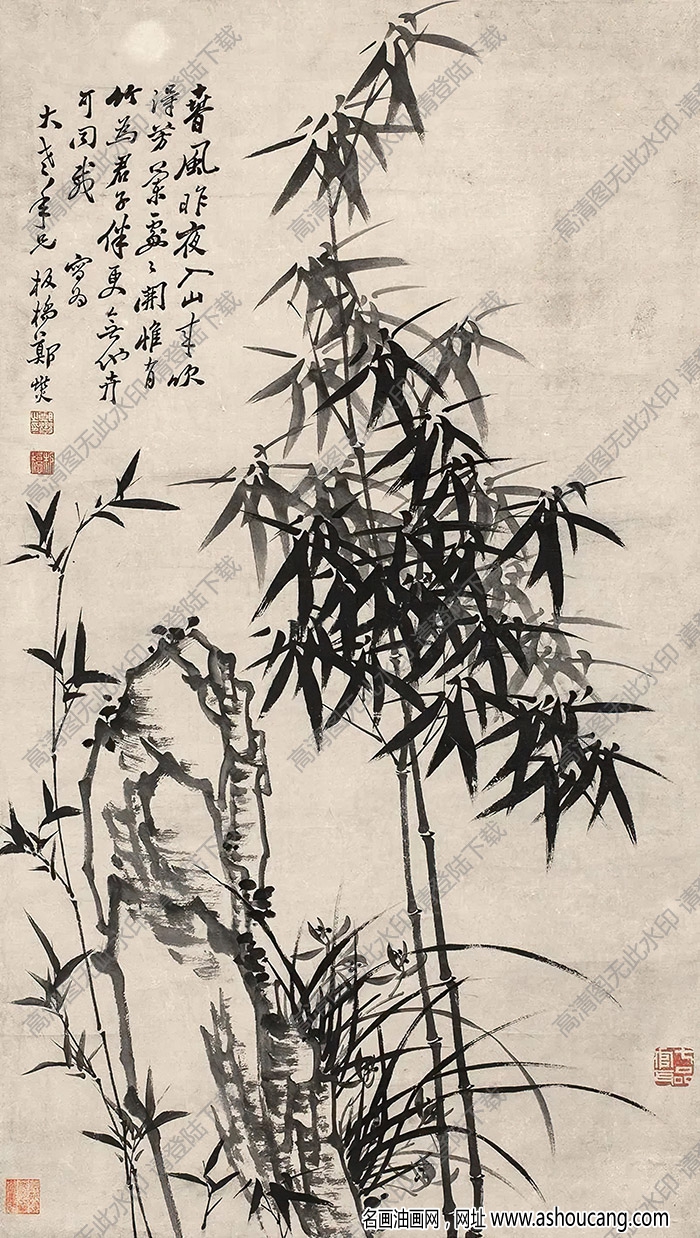 春風昨夜入山來吹
得芳蘭處〻開惟有
竹為君子伴更無他卉
可同栽 寫為
大 年兄 板橋鄭燮
七品官耳
高清图无此水印 请登陆下载
名画油画网，网址 www.ashoucang.com